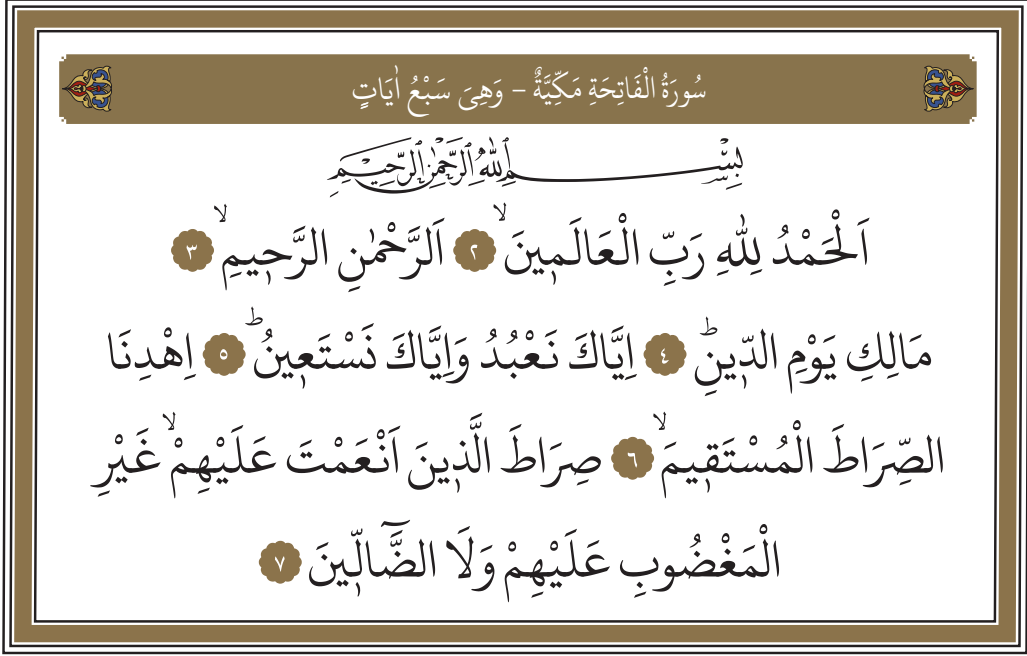 سُورَةُ الْفَاتِحَةِ مَكِّيَّةٌ - وَهِىَ سَبْعُ اٰيَاتٍ
بِسْمِ اللّٰهِ الرَّحْمٰنِ الرَّحِيمِ
اَلْحَمْدُ لِلّٰهِ رَبِّ الْعَالَمٖينَۙ ٢ اَلرَّحْمٰنِ الرَّحٖيمِۙ ٣
مَالِكِ يَوْمِ الدّٖينِؕ ٤ اِيَّاكَ نَعْبُدُ وَاِيَّاكَ نَسْتَعٖينُؕ ٥ اِهْدِنَا
الصِّرَاطَ الْمُسْتَقٖيمَۙ ٦ صِرَاطَ الَّذٖينَ اَنْعَمْتَ عَلَيْهِمْۙ غَيْرِ
الْمَغْضُوبِ عَلَيْهِمْ وَلَا الضَّٓالّٖينَ ٧